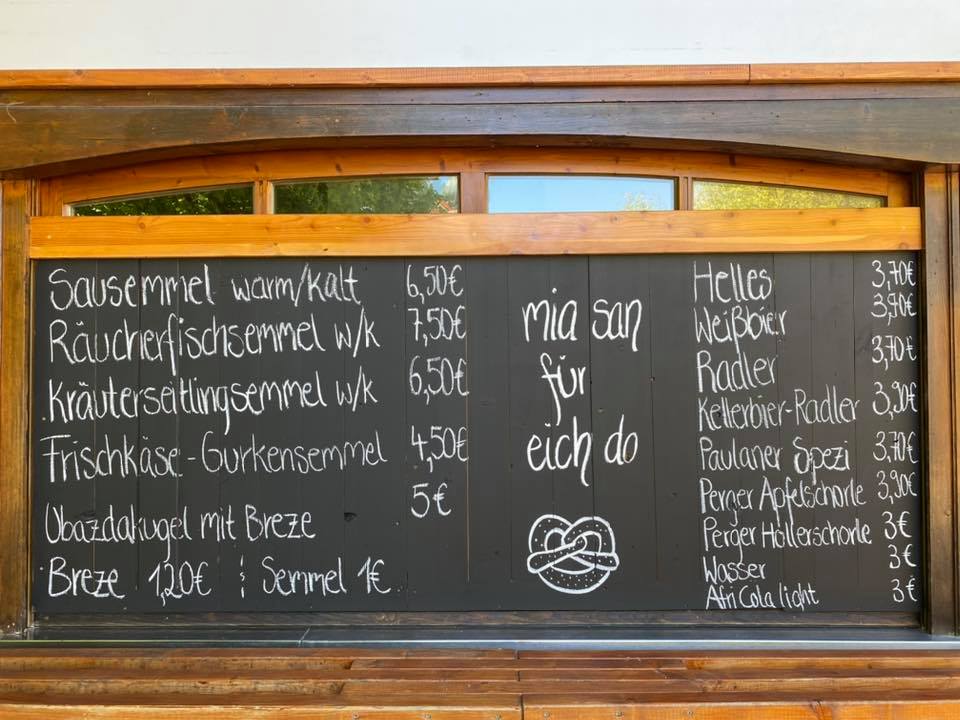 Sausemmel warm/kalt 6,50€
Räucherfischsemmel w/k 7,50€
Kräuterseitlingsemmel w/k 6,50€
Frischkäse-Gurkensemmel 4,50€
Obazdakugel mit Breze 5€
Breze 1,20€ ¦ Semmel 1€
mia san
für
eich do
Helles 3,70€
Weißbier 3,70€
Radler 3,70€
Kellerbier-Radler 3,90€
Paulaner Spezi 3,70€
Perger Apfelschorle 3,90€
Perger Hollerschorle 3€
Wasser 3€
Afri Cola light 3€